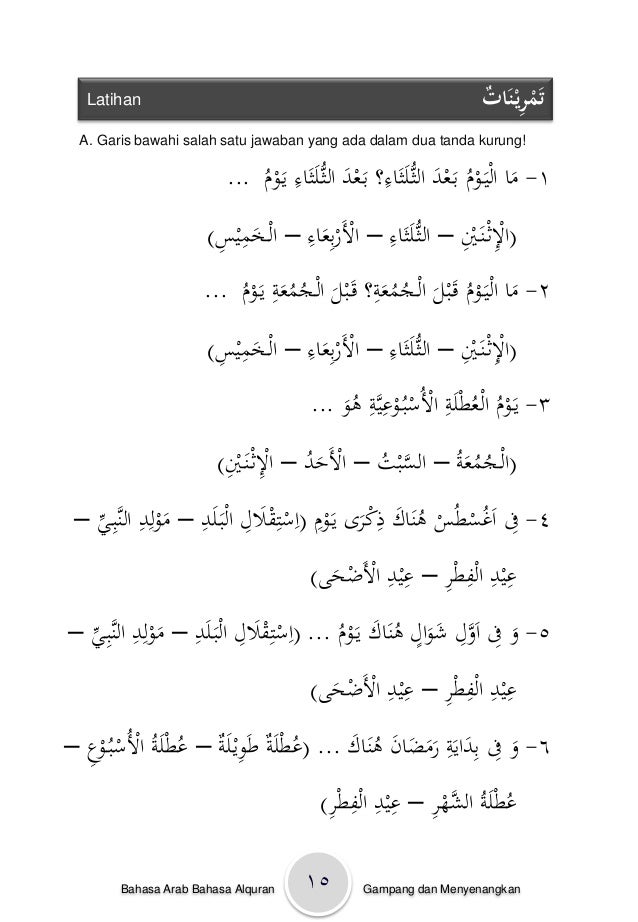 Latihan تَمْرِيْنَاتٌ
A. Garis bawahi salah satu jawaban yang ada dalam dua tanda kurung!
١- مَا الْيَوْمُ بَعْدَ الثُّلَثَاءِ؟ بَعْدَ الثُّلَثَاءِ يَوْمُ ...
(الْإِثْنَيْنِ – الثُّلَثَاءِ – الْأَرْبِعَاءِ – الْخَمِيْسِ)
٢- مَا الْيَوْمُ قَبْلَ الْجُمُعَةِ؟ قَبْلَ الْجُمُعَةِ يَوْمُ ...
(الْإِثْنَيْنِ – الثُّلَثَاءِ – الْأَرْبِعَاءِ – الْخَمِيْسِ)
٣- يَوْمُ الْعُطْلَةِ الْأُسْبُوْعِيَّةِ هُوَ ...
(الْجُمُعَةُ – السَّبْتُ – الْأَحَدُ – الْإِثْنَيْنِ)
٤- فِى اَغُسْطُسْ هُنَاكَ ذِكْرَى يَوْمِ (اِسْتِقْلَالِ الْبَلَدِ – مَوْلِدِ النَّبِيِّ –
عِيْدِ الْفِطْرِ – عِيْدِ الْأَضْحَى)
٥- وَ فِى اَوَّلِ شَوَالٍ هُنَاكَ يَوْمُ ... (اِسْتِقْلَالِ الْبَلَدِ – مَوْلِدِ النَّبِيِّ –
عِيْدِ الْفِطْرِ – عِيْدِ الْأَضْحَى)
٦- وَ فِى بِدَايَةِ رَمَضَانَ هُنَاكَ ... (عُطْلَةٌ طَوِيْلَةٌ – عُطْلَةُ الْأُسْبُوْعِ –
عُطْلَةُ الشَّهْرِ – عِيْدِ الْفِطْرِ)
Bahasa Arab Bahasa Alquran ١٥ Gampang dan Menyenangkan